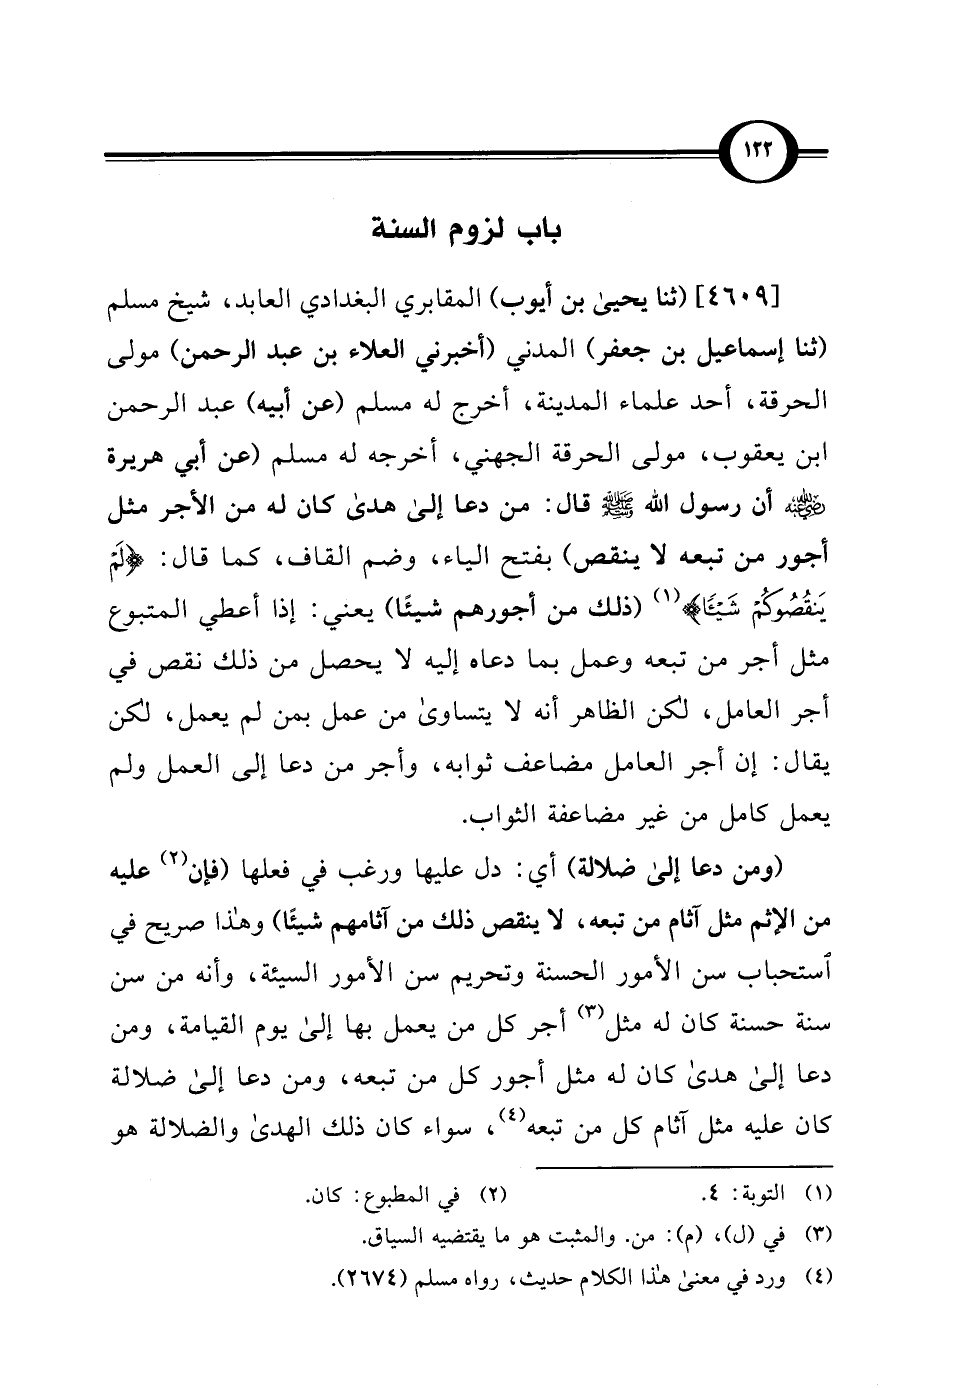 ١٢٢
باب لزوم السنة
[٤٦٠٩] (ثنا يحيىٰ بن أيوب) المقابري البغدادي العابد، شيخ مسلم
(ثنا إسماعيل بن جعفر) المدني (أخبرني العلاء بن عبد الرحمن) مولى
الحرقة، أحد علماء المدينة، أخرج له مسلم (عن أبيه) عبد الرحمن
ابن يعقوب، مولى الحرقة الجهني، أخرجه له مسلم (عن أبي هريرة
رضي الله عنه أن رسول الله ﷺ قال: من دعا إلىٰ هدىٰ كان له من الأجر مثل
أجور من تبعه لا ينقص) بفتح الياء، وضم القاف، كما قال: ﴿لَمْ
يَنقُصُوكُمْ شَيْـًٔا﴾(١) (ذلك من أجورهم شيئًا) يعني: إذا أعطي المتبوع
مثل أجر من تبعه وعمل بما دعاه إليه لا يحصل من ذلك نقص في
أجر العامل، لكن الظاهر أنه لا يتساوىٰ من عمل بمن لم يعمل، لكن
يقال: إن أجر العامل مضاعف ثوابه، وأجر من دعا إلى العمل ولم
يعمل كامل من غير مضاعفة الثواب.
(ومن دعا إلىٰ ضلالة) أي: دل عليها ورغب في فعلها (فإن(٢) عليه
من الإثم مثل آثام من تبعه، لا ينقص ذلك من آثامهم شيئًا) وهٰذا صريح في
ٱستحباب سن الأمور الحسنة وتحريم سن الأمور السيئة، وأنه من سن
سنة حسنة كان له مثل(٣) أجر كل من يعمل بها إلىٰ يوم القيامة، ومن
دعا إلىٰ هدىٰ كان له مثل أجور كل من تبعه، ومن دعا إلىٰ ضلالة
كان عليه مثل آثام كل من تبعه(٤)، سواء كان ذلك الهدىٰ والضلالة هو
(١) التوبة: ٤. (٢) في المطبوع: كان.
(٣) في (ل)، (م): من. والمثبت هو ما يقتضيه السياق.
(٤) ورد في معنىٰ هٰذا الكلام حديث، رواه مسلم (٢٦٧٤).